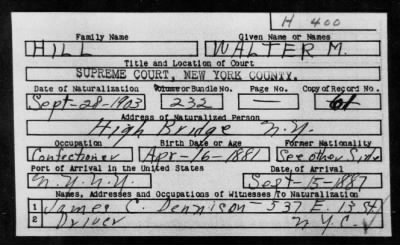 H 400
Family Name Given Name or Names
HILL WALTER M.
Title and Location of Court
SUPREME COURT, NEW YORK COUNTY.
Date of Naturalization Volume or Bundle No. Page No. Copy of Record No.
Sept-28-1903 232 — 61
Address of Naturalized Person
High Bridge N.Y.
Occupation Birth Date or Age Former Nationality
Confectioner Apr-16-1881 See other Side
Port of Arrival in the United States Date of Arrival
N.Y. N.Y. Sept-15-1887
Names, Addresses and Occupations of Witnesses To Naturalization
1 James C. Dennison-537 E. 13 St
2 Driver N.Y.C.